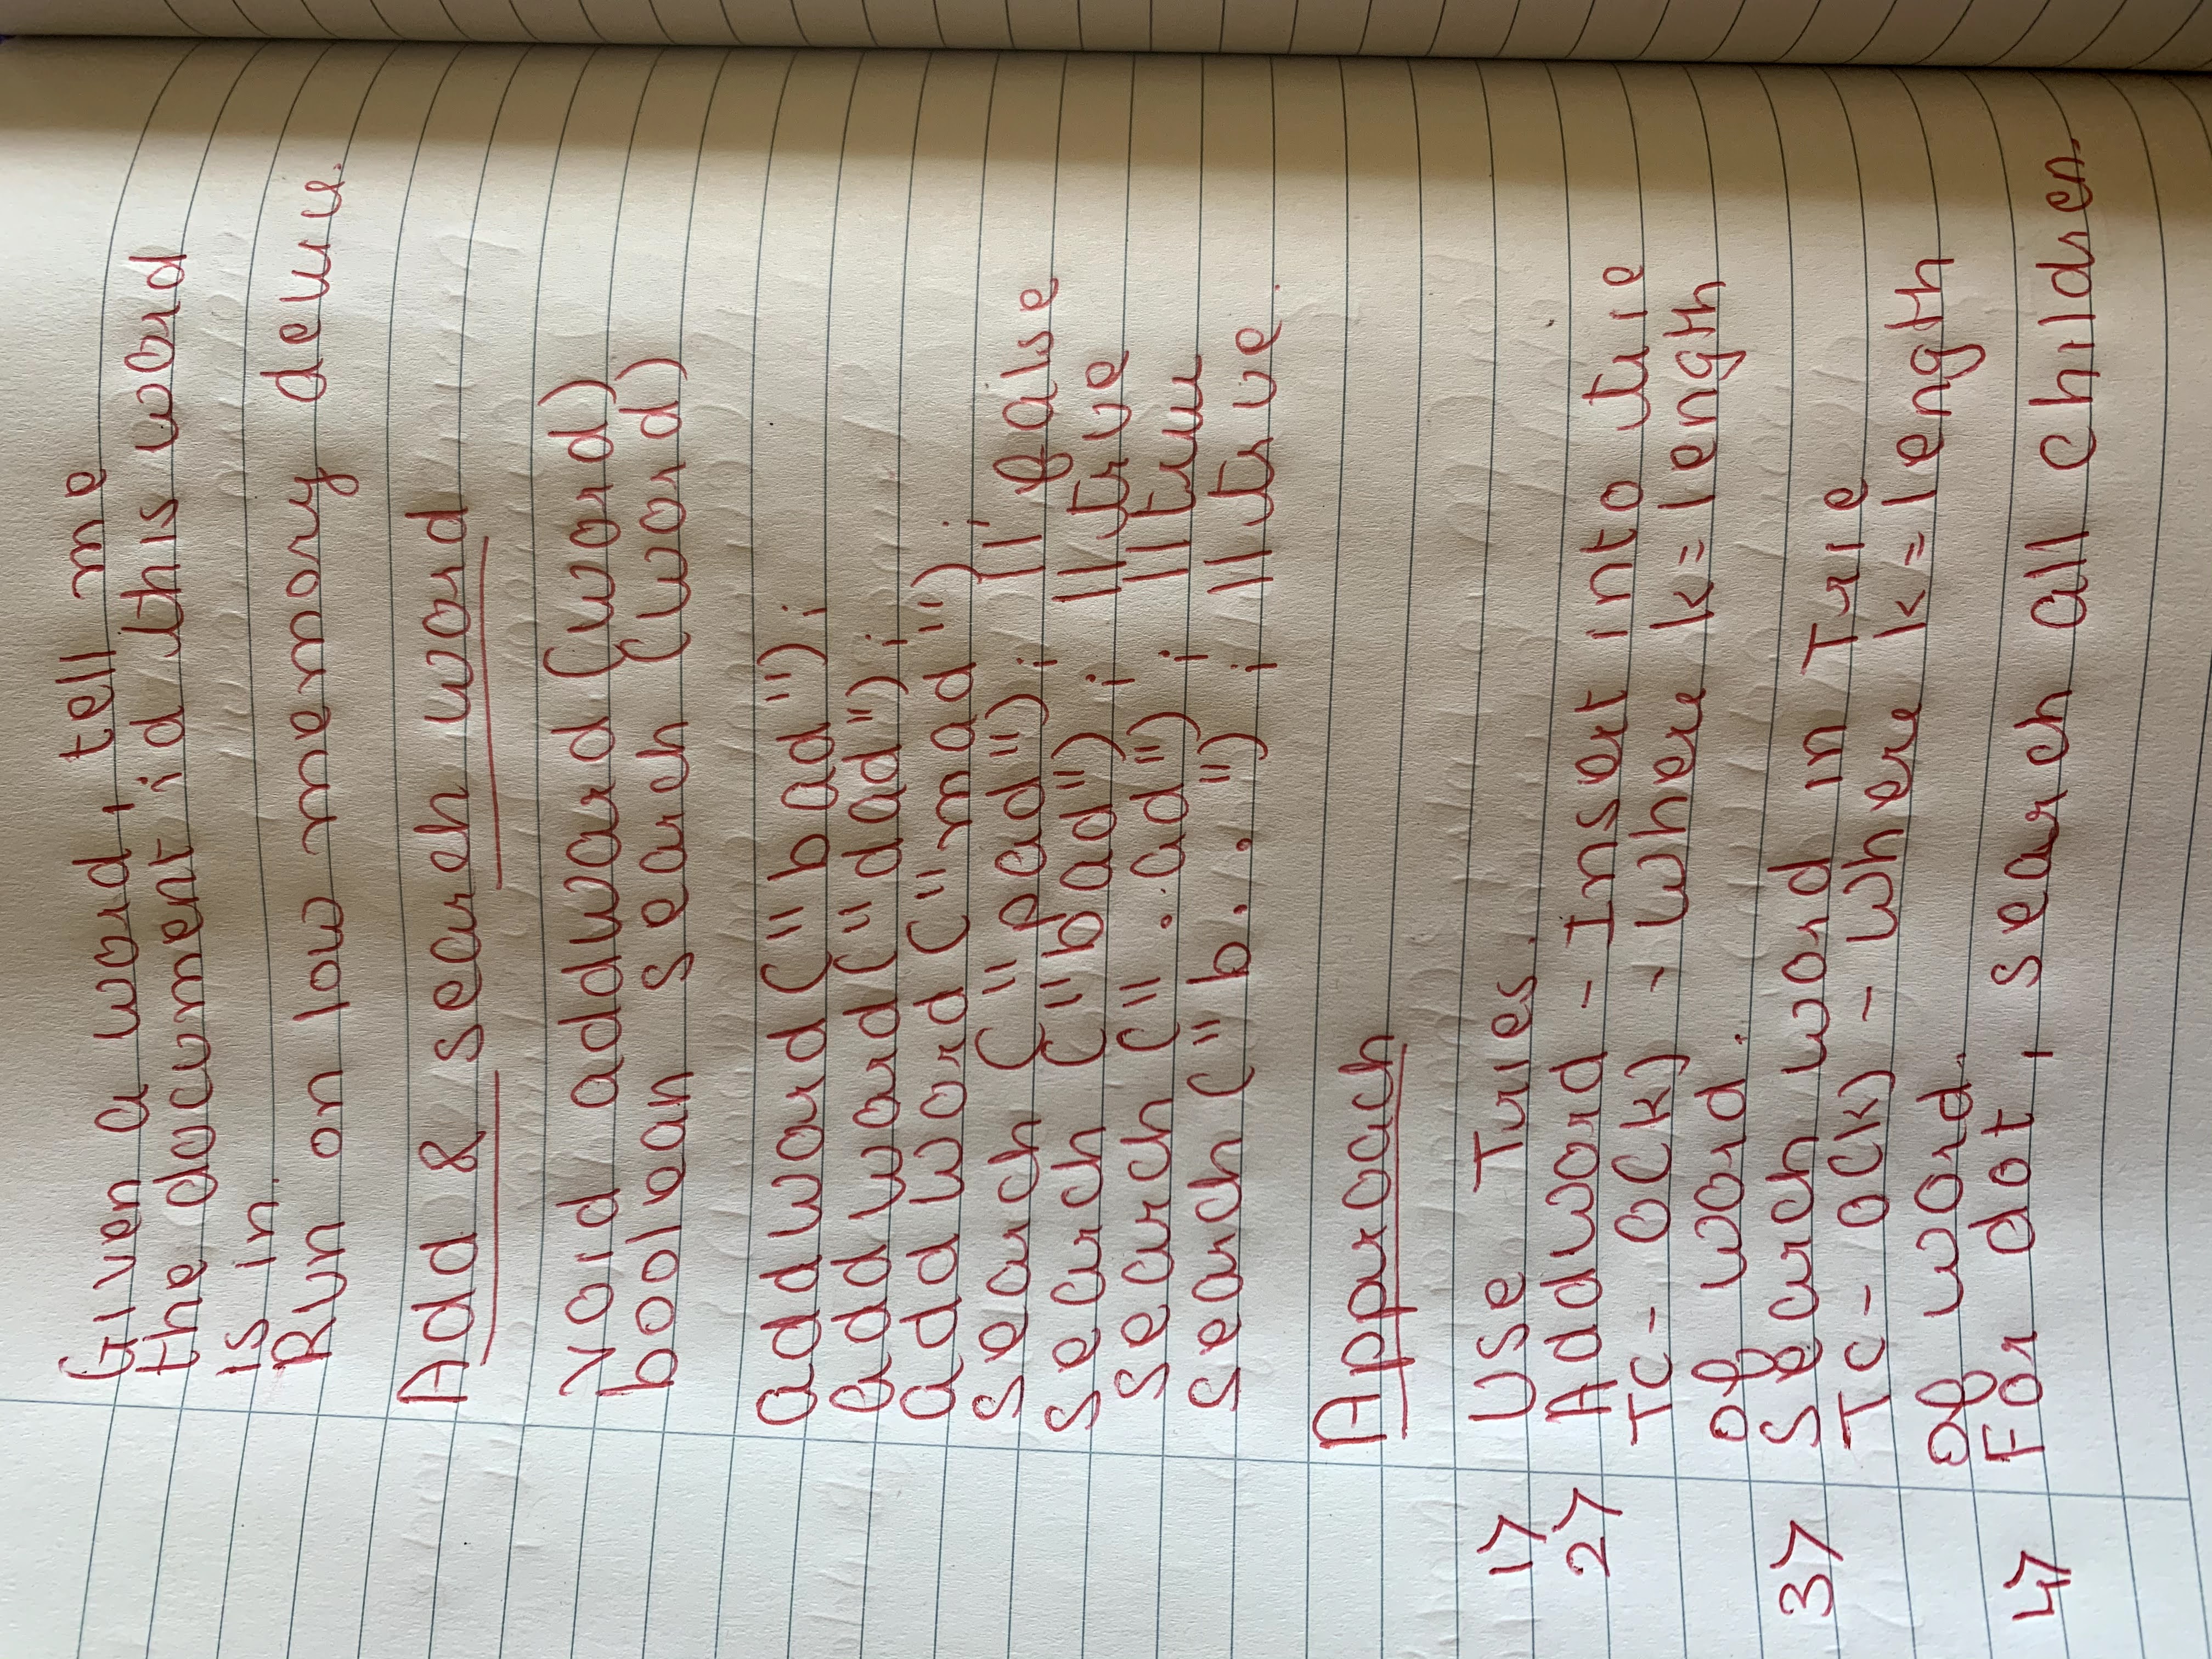 Given a word, tell me
the document id this word
is in.
Run on low memory device.
Add & search word
void addword(word)
boolean search (word)
addword("bad");
addword("dad");
addword("mad");
search ("pad"); // false
search ("bad"); // true
search (".ad"); // true
search ("b.."); // true.
Approach
1> Use Tries.
2> Addword - Insert into trie
TC - O(k) - where k = length
of word.
3> Search word in Trie
TC - O(k) - where k = length
of word.
4> For dot, search all children.